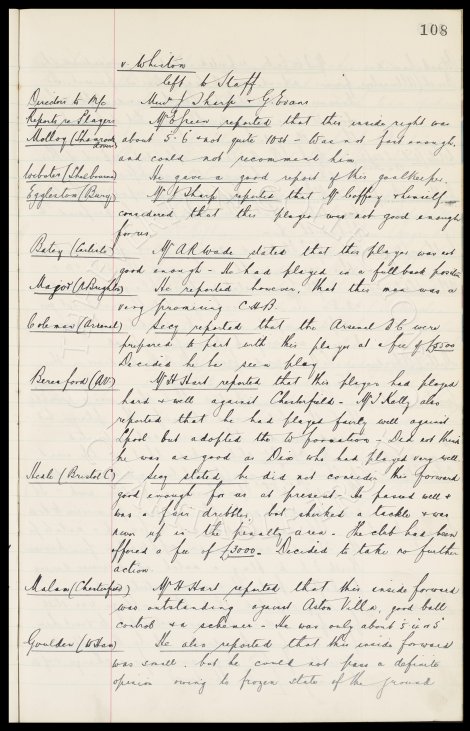 108
v. Whiston
left to Staff
Directors to M/c Messrs J Sharp & G Evans
Reports re Players Mr E Green reported that this inside right was
Molloy (Shamrock about 5' 6" & not quite 10st - was not fast enough,
and could not recommend him
Webster (Shelbourne) He gave a good report of this goalkeeper.
Egglerton (Bury) Mr J Sharp reported that Mr & himself
considered that this player was not good enough
for us.
Batey (Carlisle) Mr A R Wade stated that this player was not
good enough - He had played in a full back position
Magor (N Brighton) He reported however, that this man was a
very promising C.H.B.
Coleman (Arsenal) Secy reported that the Arsenal F C were
prepared to part with this player at a fee of
Decided he be seen play
Beresford (A.V.) Mr H Hart reported that this player had played
hard & well against Chesterfield - Mr J Kelly also
reported that he had played fairly well against
Lpool but adopted the W formation - Did not think
he was as good as Dix who had played very well
Heale (Bristol C) Secy stated he did not consider this forward
good enough for us at present - He passed well &
was a fair dribbler, but shirked a tackle & was
never up in the penalty area. - The club had been
offered a fee of £3000. Decided to take no further
action.
Malam (Chesterfield) Mr H Hart reported that this inside forward
was outstanding against Aston Villa, good ball
control & a schemer - He was only about 5'
Goulden (W Ham) He also reported that this inside forward
was small, but he could not pass a definite
opinion owing to frozen state of the ground